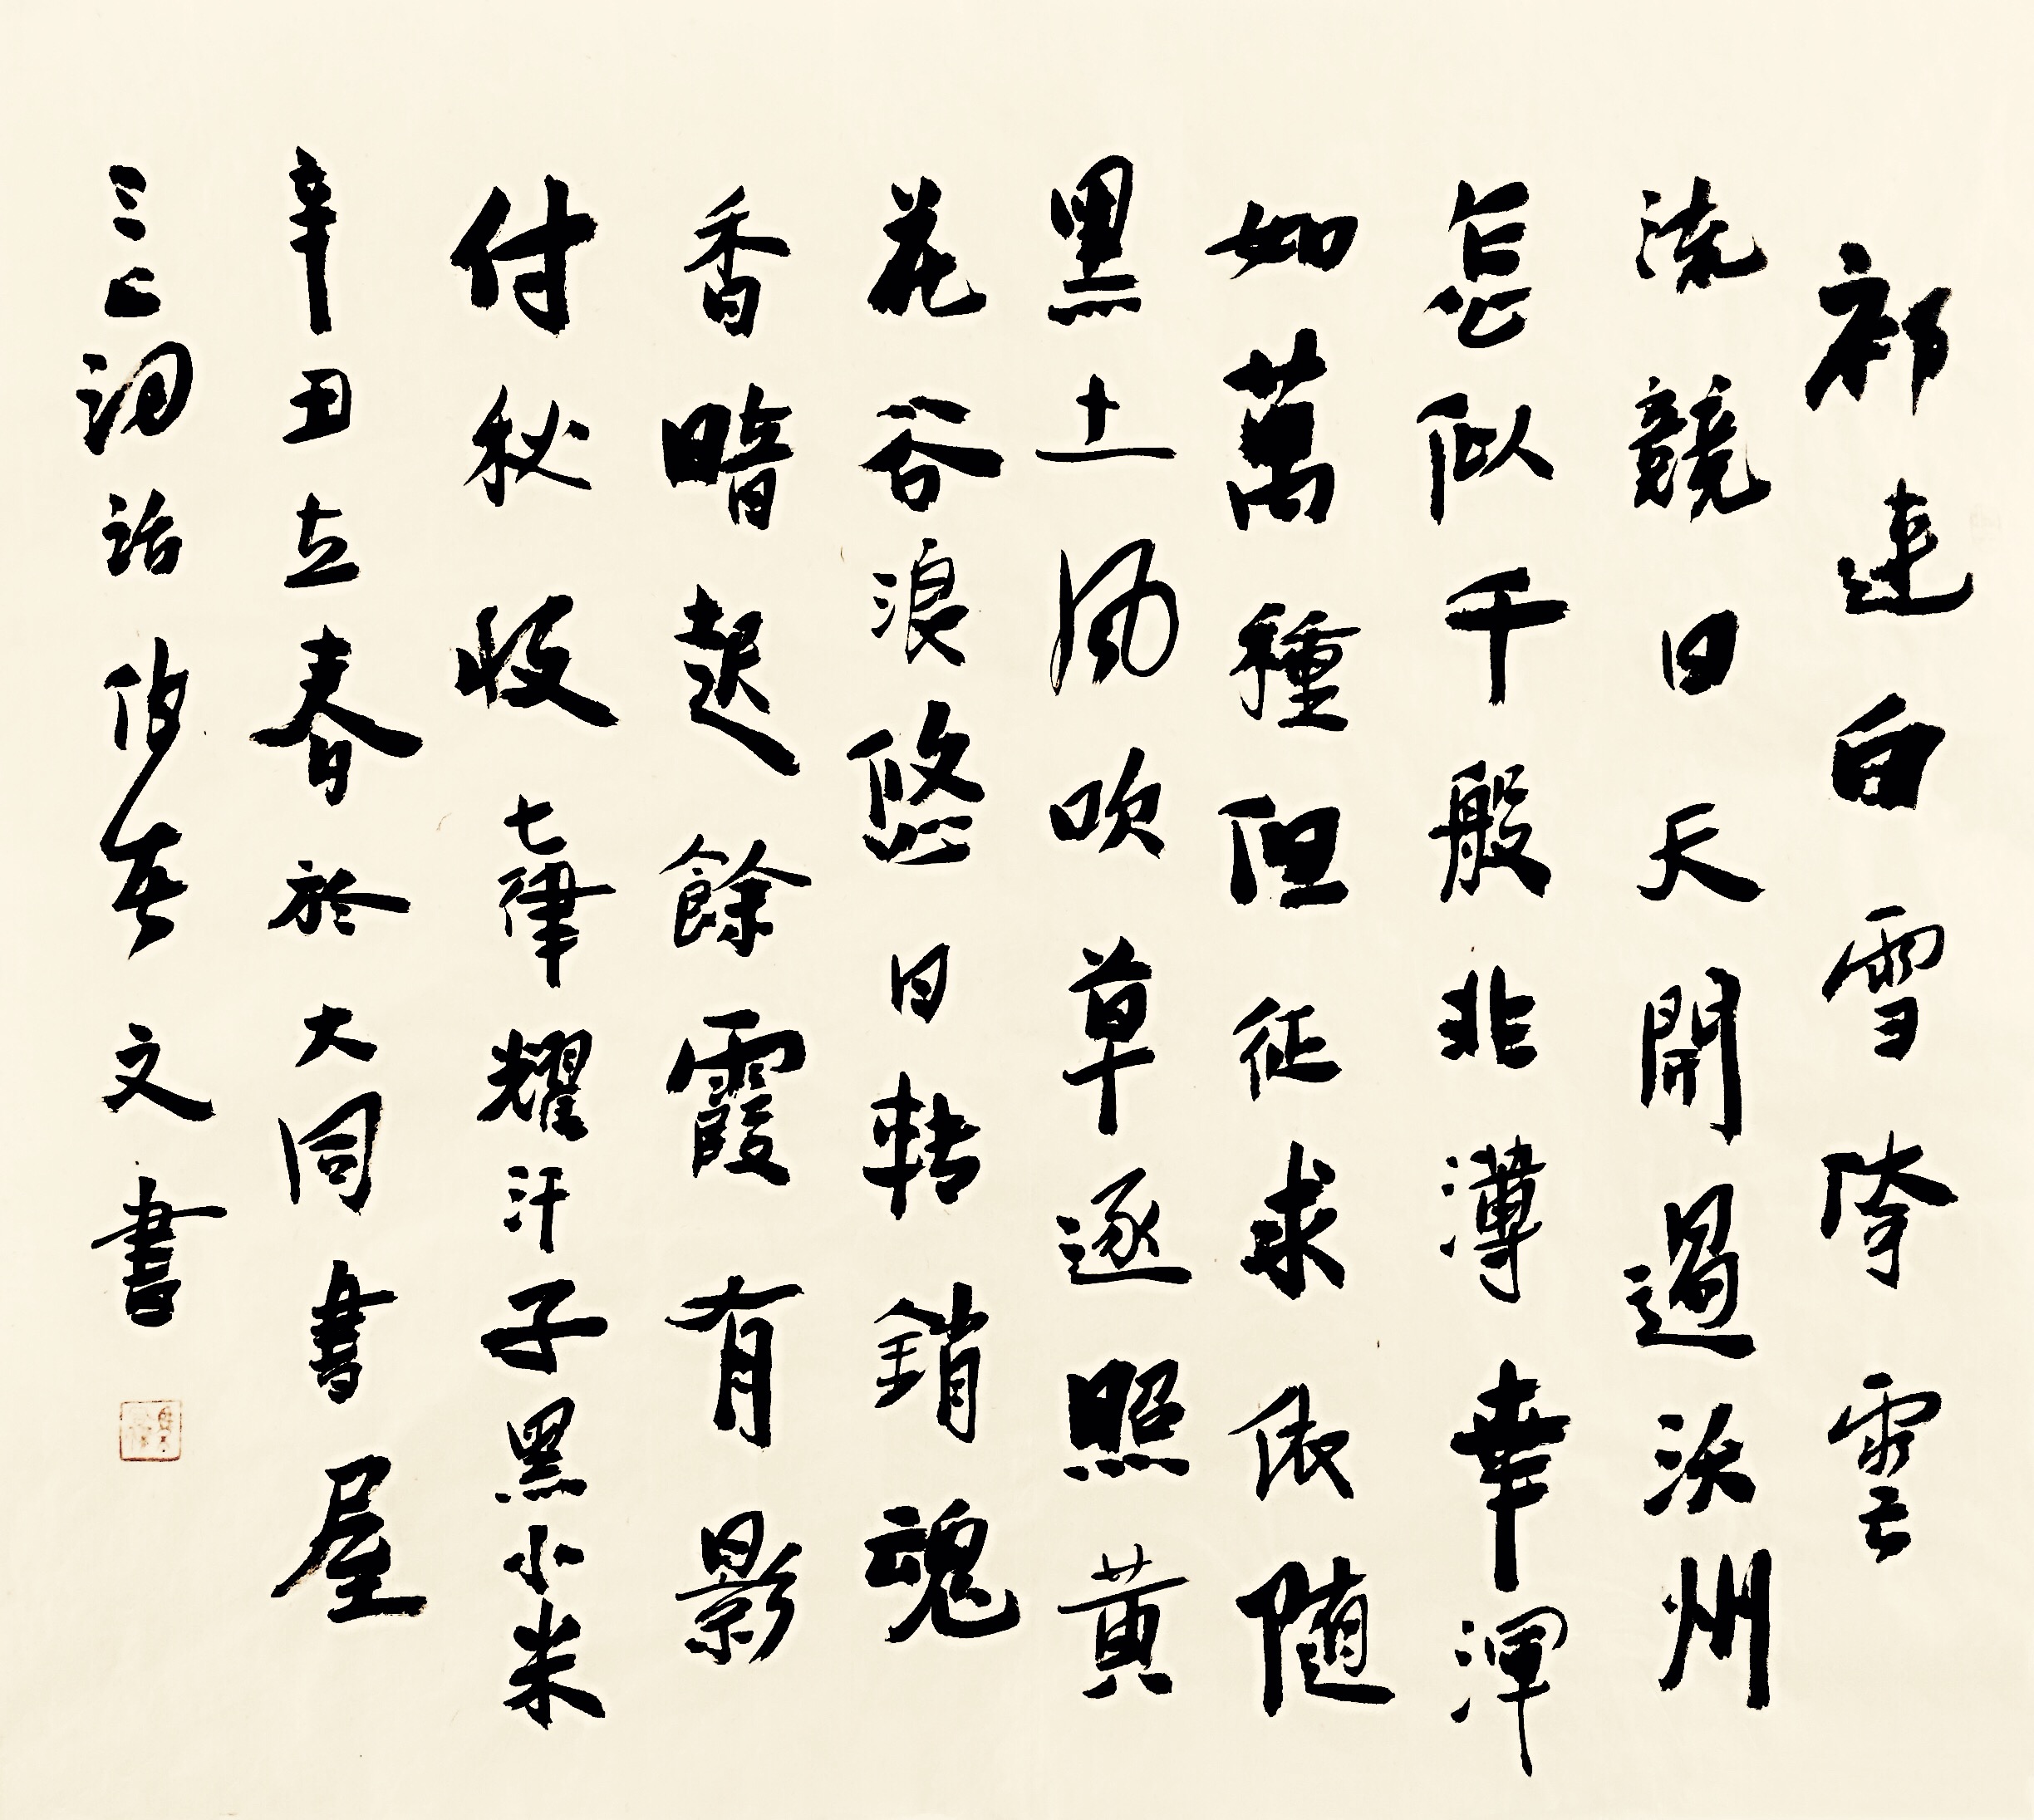 祁連白雪降雲
流競日天開過沃州
怎似千般非薄幸渾
如萬種但征求依随
黑土風吹草逐照黄
花谷浪悠日轉銷魂
香暗起餘霞有影
付秋收七律耀汗子黑小米
辛丑立春於大同書屋
詞話文書